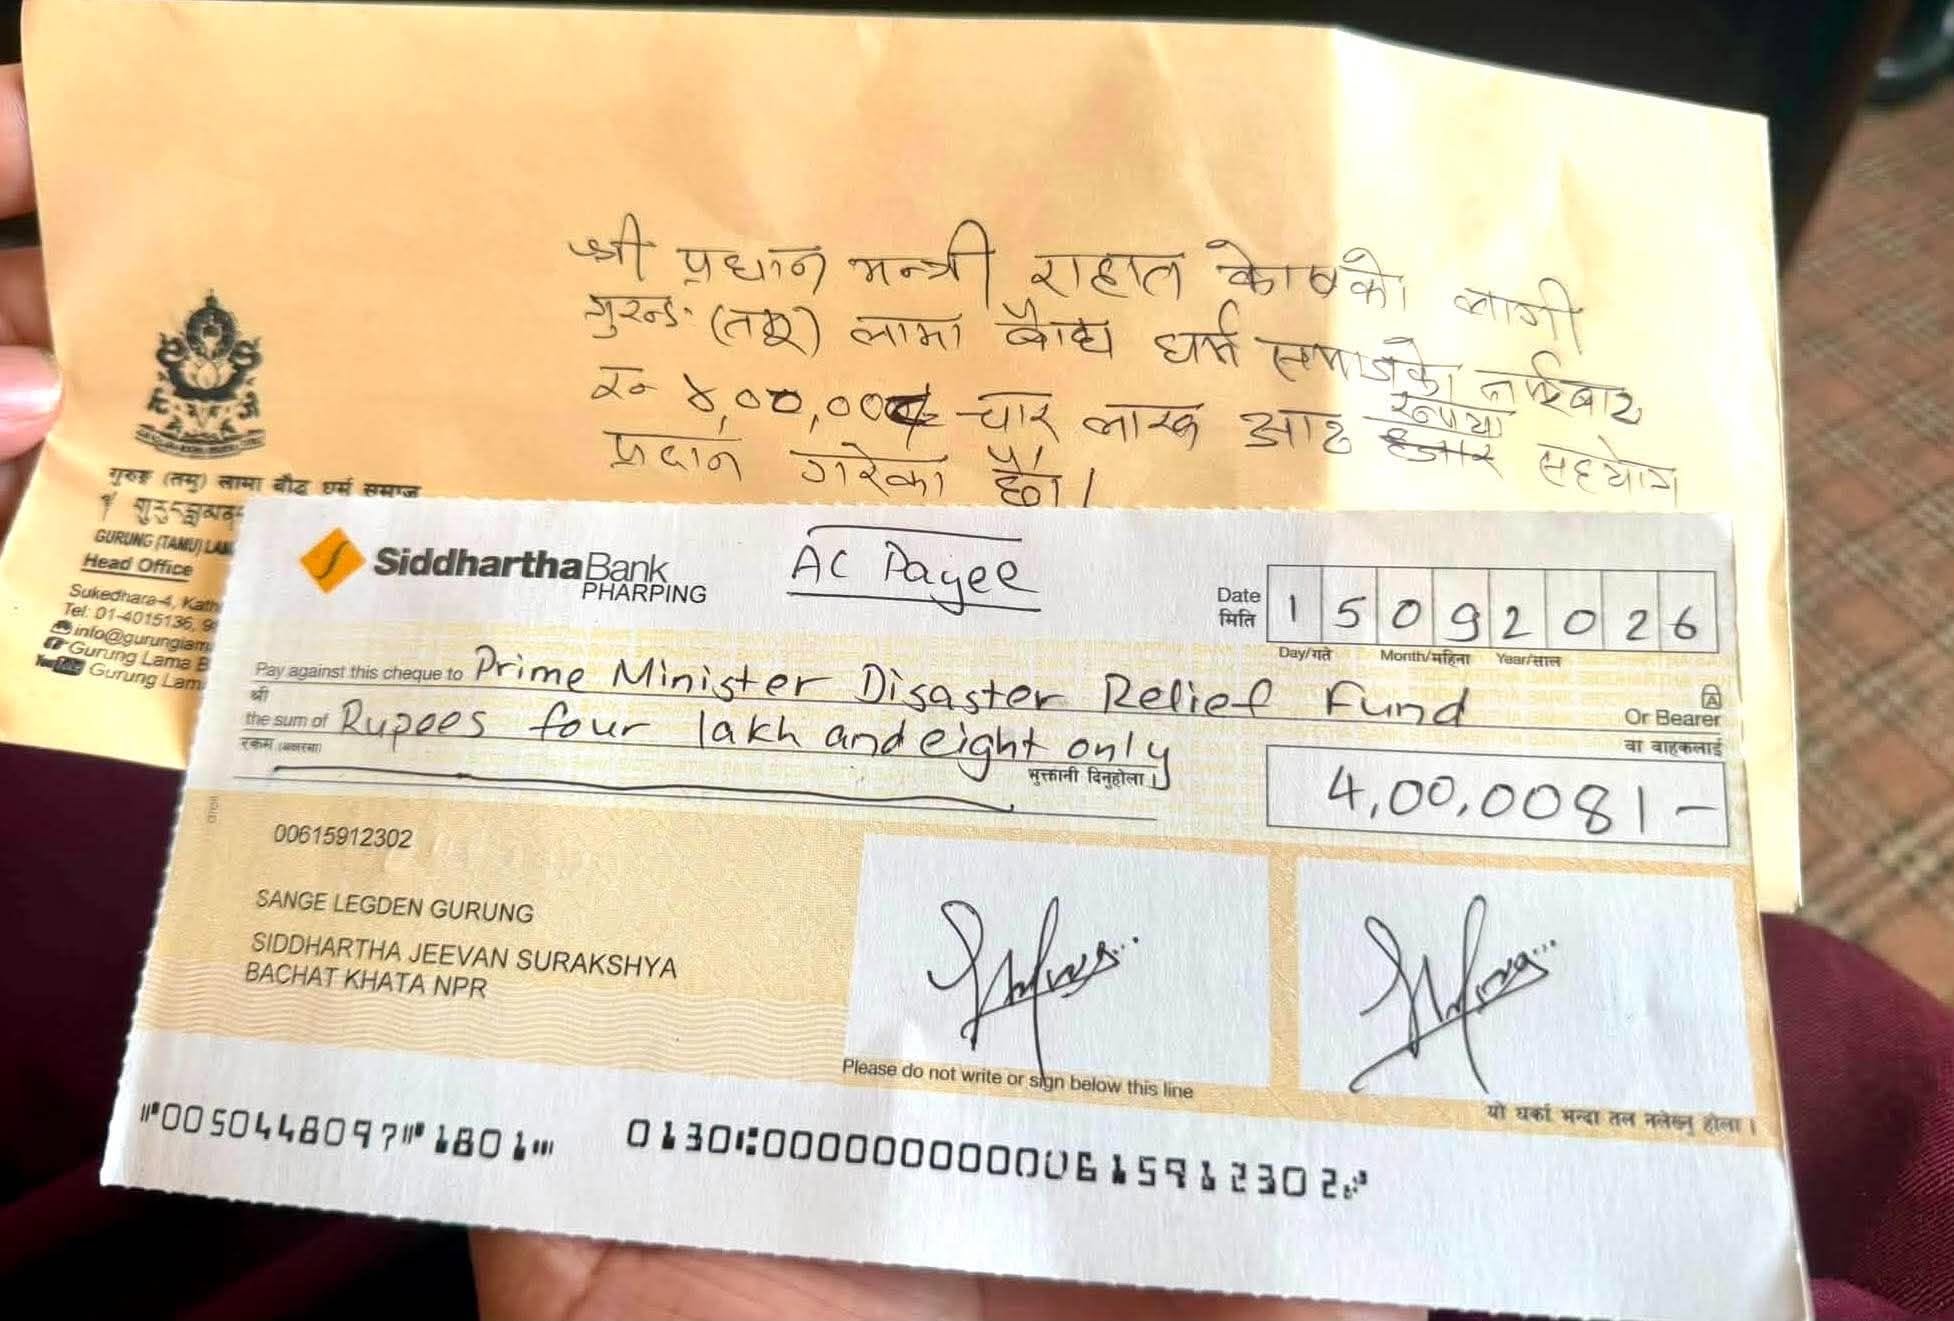 श्री प्रधान मन्त्री राहात कोषको लागी
गुरुङ (तमू) लामा बौद्ध धर्म समाजको तर्फबाट
रु ४,००,००८/- चार लाख आठ रुपैया हजार सहयोग
प्रदान गरेका छौं।
गुरुङ (तमु) लामा बौद्ध धर्म समाज
GURUNG (TAMU) LAM
Head Office
Sukedhara-4, Kath
Tel: 01-4015136, 9
info@gurunglam
Gurung Lama B
Gurung Lam
SiddharthaBank
PHARPING
AC Payee
Date
मिति
15092026
Day/गते Month/महिना Year/साल
Pay against this cheque to Prime Minister Disaster Relief Fund
श्री
Or Bearer
वा वाहकलाई
the sum of Rupees four lakh and eight only
रकम (अक्षरमा)
भुक्तानी दिनुहोला।
4,00,008/-
00615912302
SANGE LEGDEN GURUNG
SIDDHARTHA JEEVAN SURAKSHYA
BACHAT KHATA NPR
Please do not write or sign below this line
यो धर्का भन्दा तल नलेख्नु होला।
⑈0050448097⑈1801⑈ 0130⑆0000000000000615912302⑆